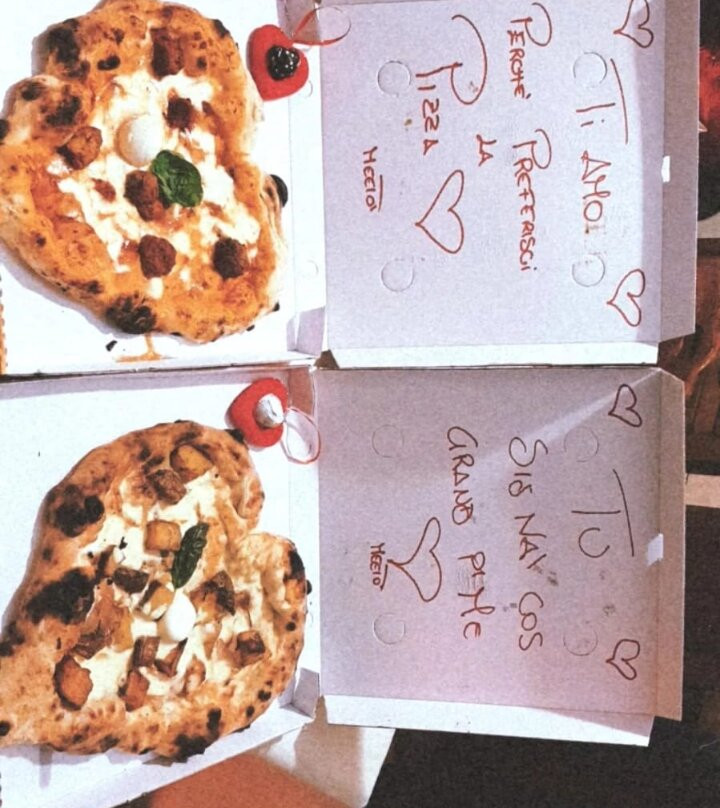 Ti AMO
PERCHÉ PREFERISCI
LA
PIZZA
MEETOI
TU
SIJ NAV COS
GRAND P'ME
MEETOI